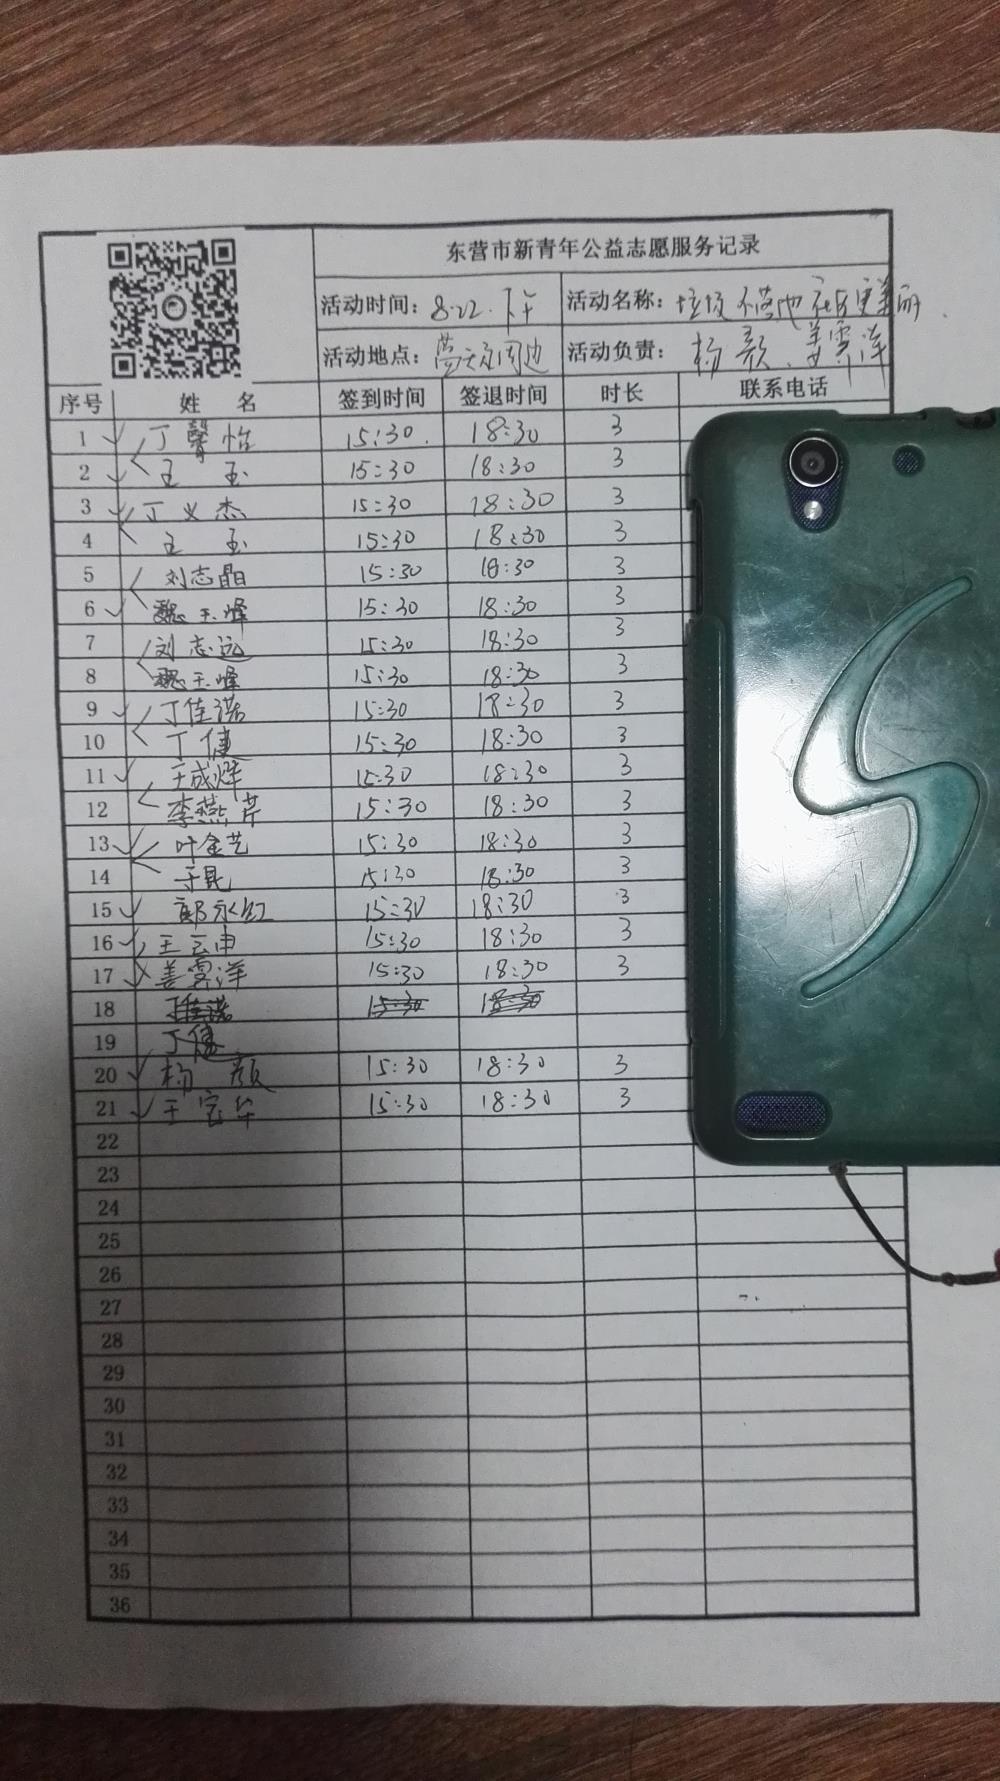 东营市新青年公益志愿服务记录
活动时间：8.22.下午 活动名称：垃圾不落地 社区更美丽
活动地点：周边 活动负责：杨颜、姜雯洋
序号 姓名 签到时间 签退时间 时长 联系电话
1 丁馨怡 15:30. 18:30 3
2 王玉 15:30 18:30 3
3 丁义杰 15:30 18:30 3
4 王玉 15:30 18:30 3
5 刘志晶 15:30 18:30 3
6 魏玉峰 15:30 18:30 3
7 刘志远 15:30 18:30 3
8 魏玉峰 15:30 18:30 3
9 丁佳诺 15:30 18:30 3
10 丁健 15:30 18:30 3
11 王成烨 15:30 18:30 3
12 李燕芹 15:30 18:30 3
13 叶金艺 15:30 18:30 3
14 于昆 15:30 18:30 3
15 郭永红 15:30 18:30 3
16 王云由 15:30 18:30 3
17 姜雯洋 15:30 18:30 3
18 丁佳诺 15:30 18:30
19 丁健
20 杨颜 15:30 18:30 3
21 王宝华 15:30 18:30 3
22
23
24
25
26
27
28
29
30
31
32
33
34
35
36